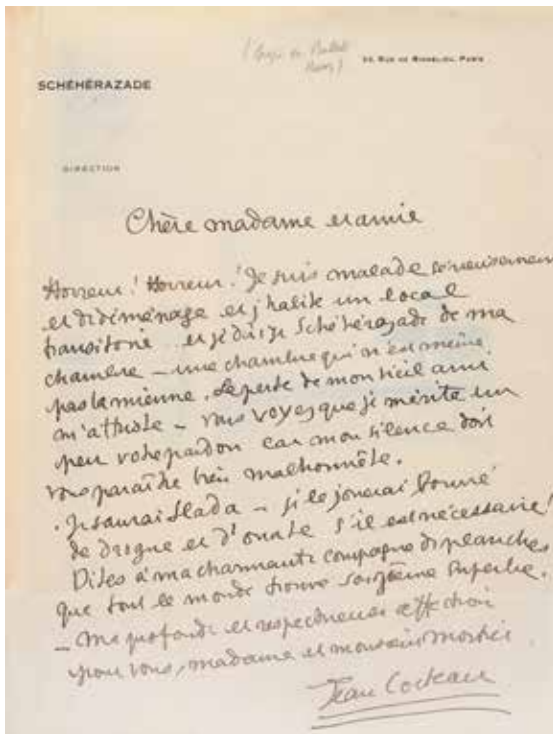 33, RUE DE RICHELIEU, PARIS
SCHÉHÉRAZADE
DIRECTION
Chère madame et amie
Horreur! Horreur! Je suis malade
et déménage et j'habite un local
transitoire et je dirige Schéhérazade de ma
chambre – une chambre qui n'est même
pas la mienne. La perte de mon vieil ami
m'attriste – vous voyez que je mérite un
peu votre pardon car mon silence doit
vous paraître très malhonnête.
. Je saurai – je le jouerai bourré
de drogue et d'ouate s'il est nécessaire!
Dites à ma charmante compagne de planches
que tout le monde trouve superbe.
– Ma profonde et respectueuse affection
pour vous, madame et monsieur
Jean Cocteau